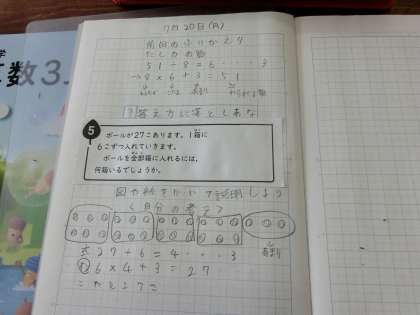 7月20日(月)
前回のふりかえり
たしかめ算
51÷8=6・・・3
→8×6+3=51
あまり
わられる数
答え方に落としあな
5
ボールが27こあります。1箱に
6こずつ入れていきます。
ボールを全部箱に入れるには、
何箱いるでしょうか。
図や絵をかいて説明しよう
<自分の考え>
あまり
式27÷6=4・・・3
6×4+3=27
こたえ
算数3